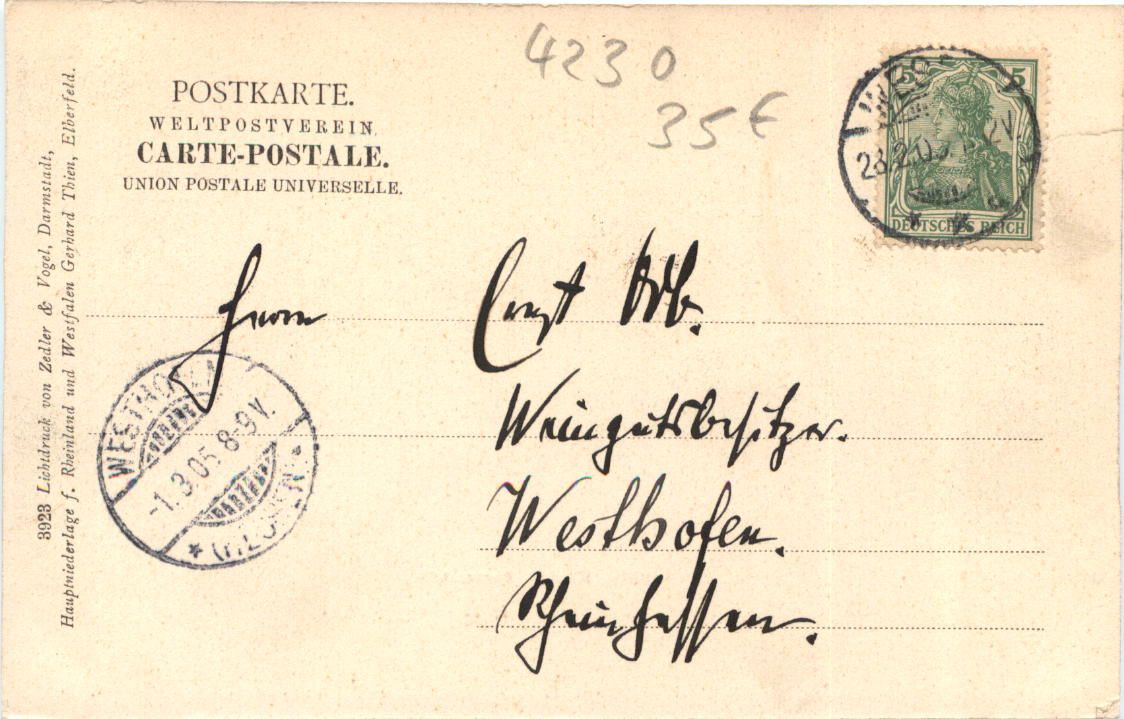 4230
35 €
POSTKARTE.
WELTPOSTVEREIN.
CARTE-POSTALE.
UNION POSTALE UNIVERSELLE.
3923 Lichtdruck von Zedler & Vogel, Darmstadt,
Hauptniederlage f. Rheinland und Westfalen Gerhard Thien, Elberfeld.
5 5
DEUTSCHES REICH
28.2.05
Herrn
Ernst Orb.
Weingutsbesitzer.
Westhofen.
Rheinhessen.
WESTHOFEN
-1.3.05 8-9V.
* (RHESSEN) *